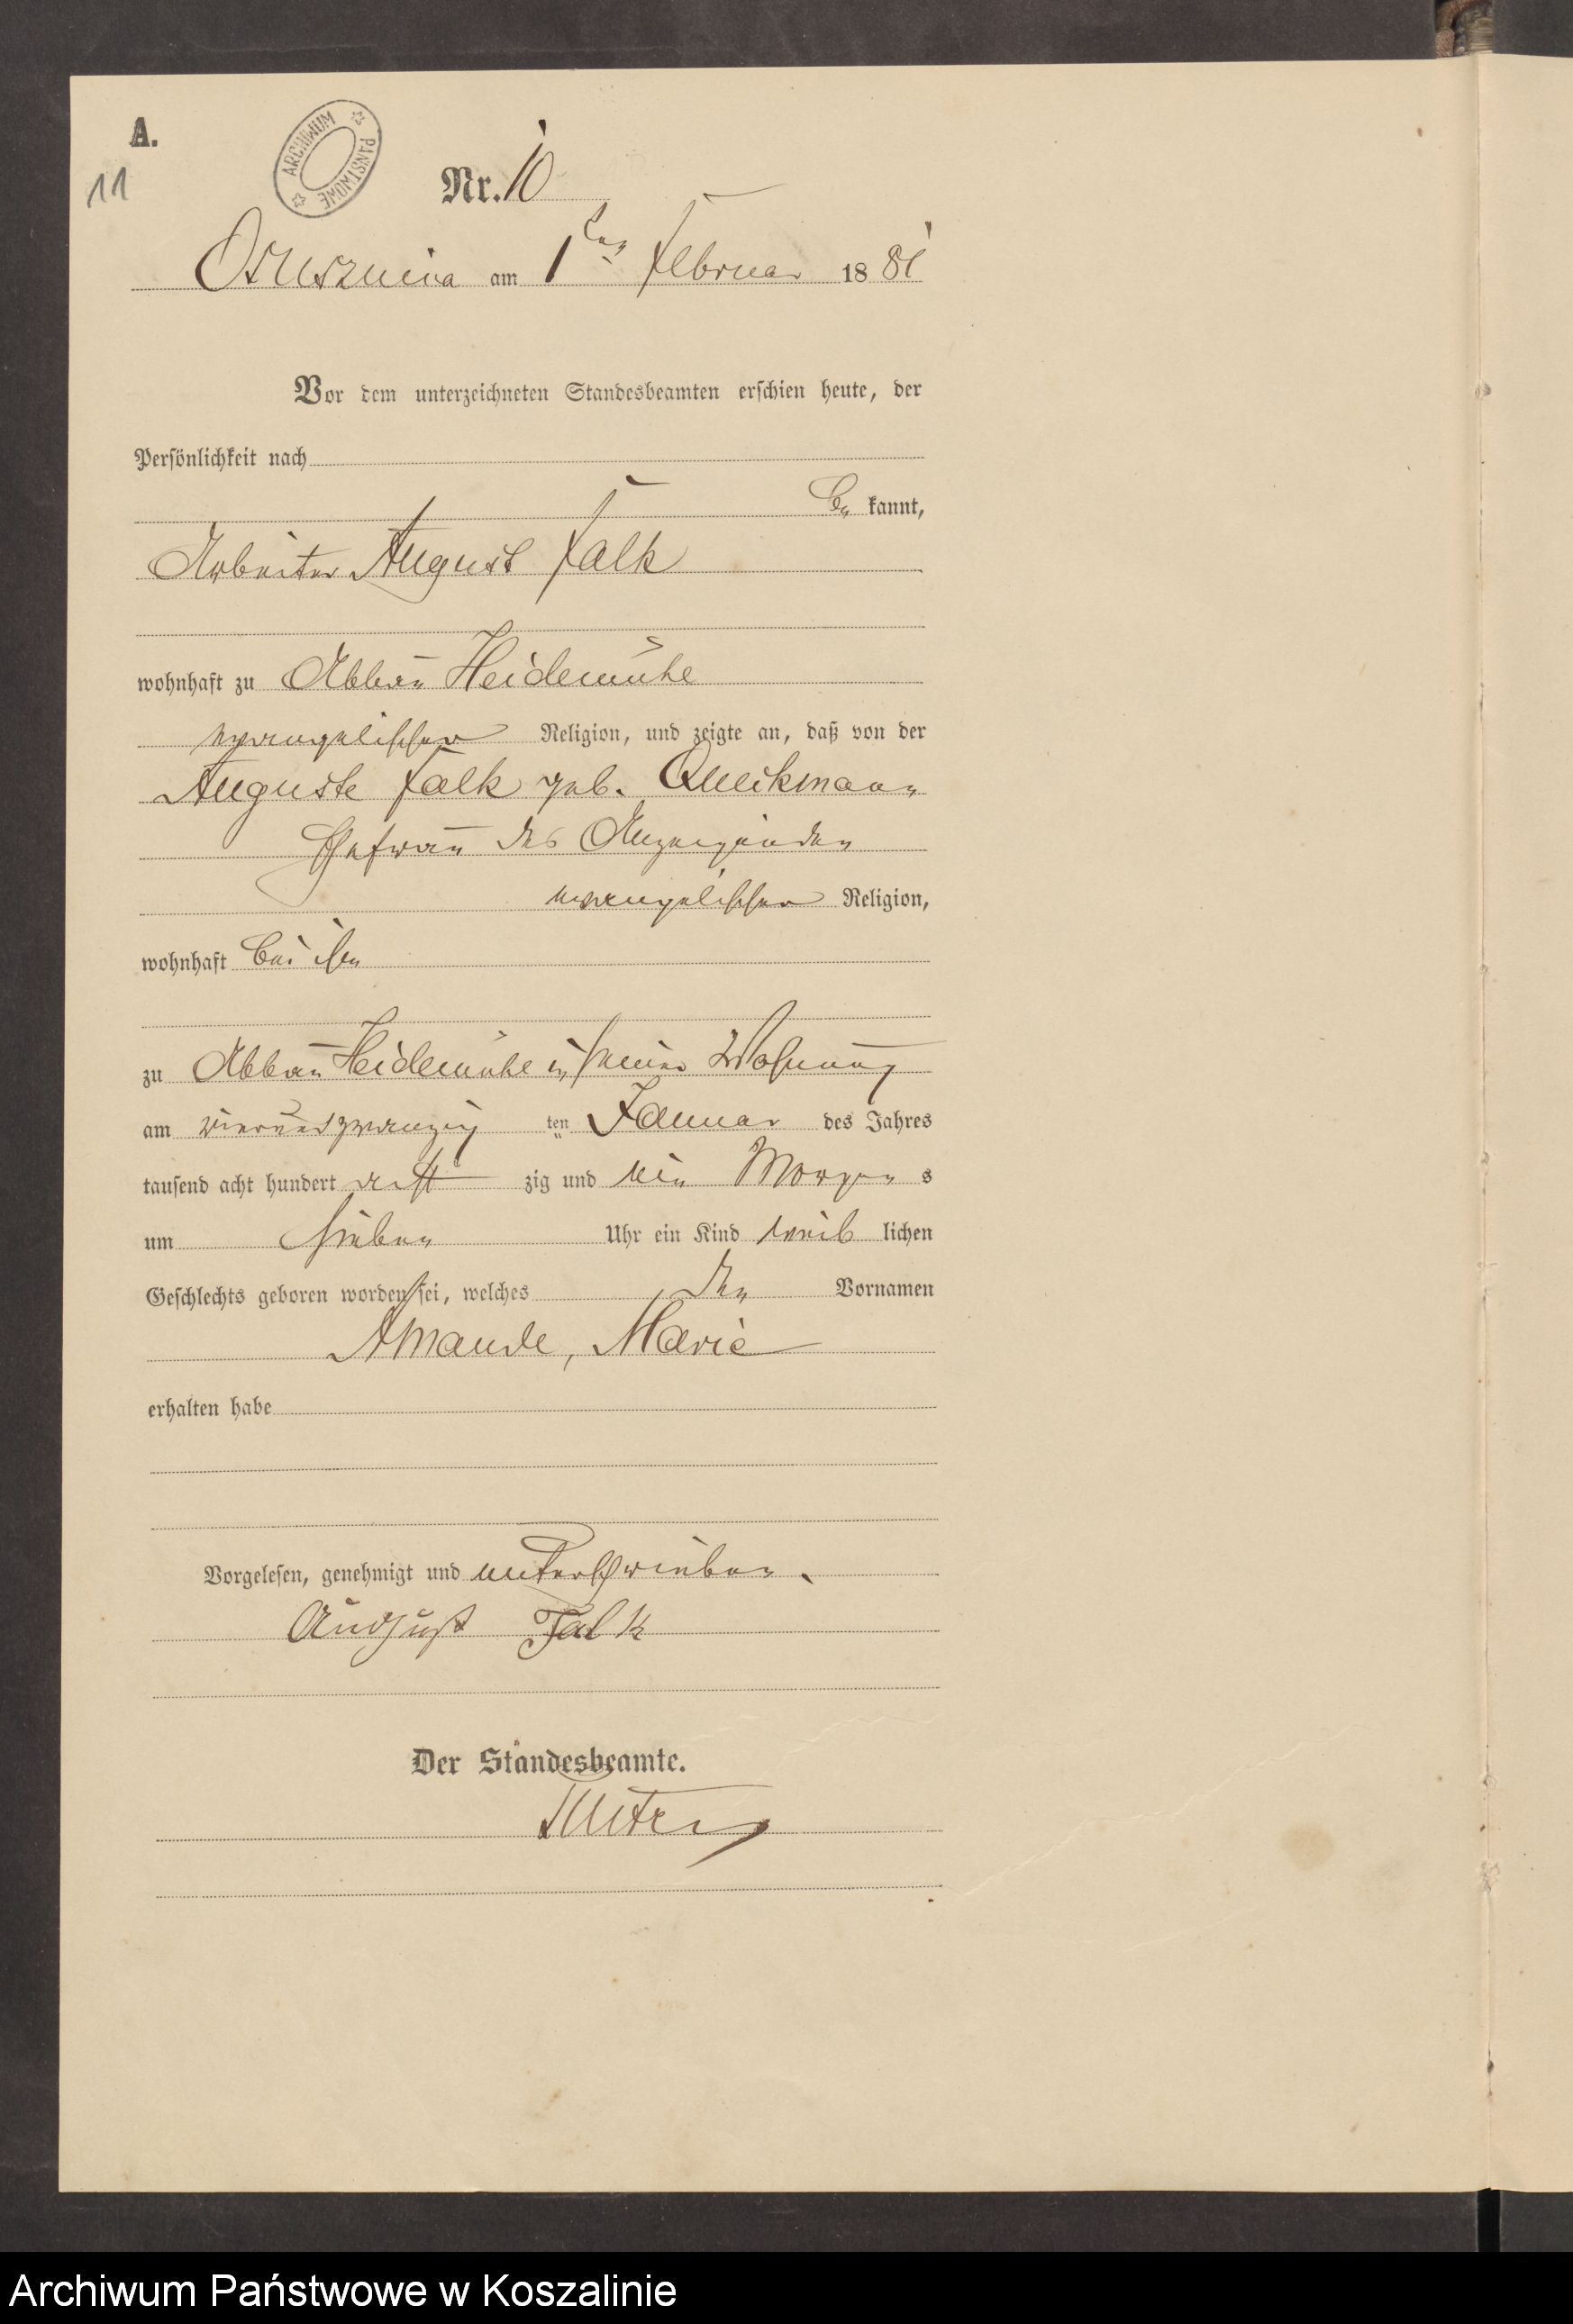 A.
11
ARCHIWUM PAŃSTWOWE
Nr. 10
am 1ten Februar 1881
Vor dem unterzeichneten Standesbeamten erschien heute, der
Persönlichkeit nach
be kannt,
Arbeiter August Falk
wohnhaft zu Abbau Heidemühe
evangelischer Religion, und zeigte an, daß von der
Auguste Falk geb. Queckmann
Ehefrau des Anzeigenden
evangelischer Religion,
wohnhaft bei ihm
zu Abbau Heidemühe in seiner Wohnung
am vierundzwanzig ten Januar des Jahres
tausend acht hundert acht zig und ein Morgen s
um sieben Uhr ein Kind weib lichen
Geschlechts geboren worden sei, welches den Vornamen
Amande, Marie
erhalten habe
Vorgelesen, genehmigt und unterschrieben.
August Falk
Der Standesbeamte.
Archiwum Państwowe w Koszalinie